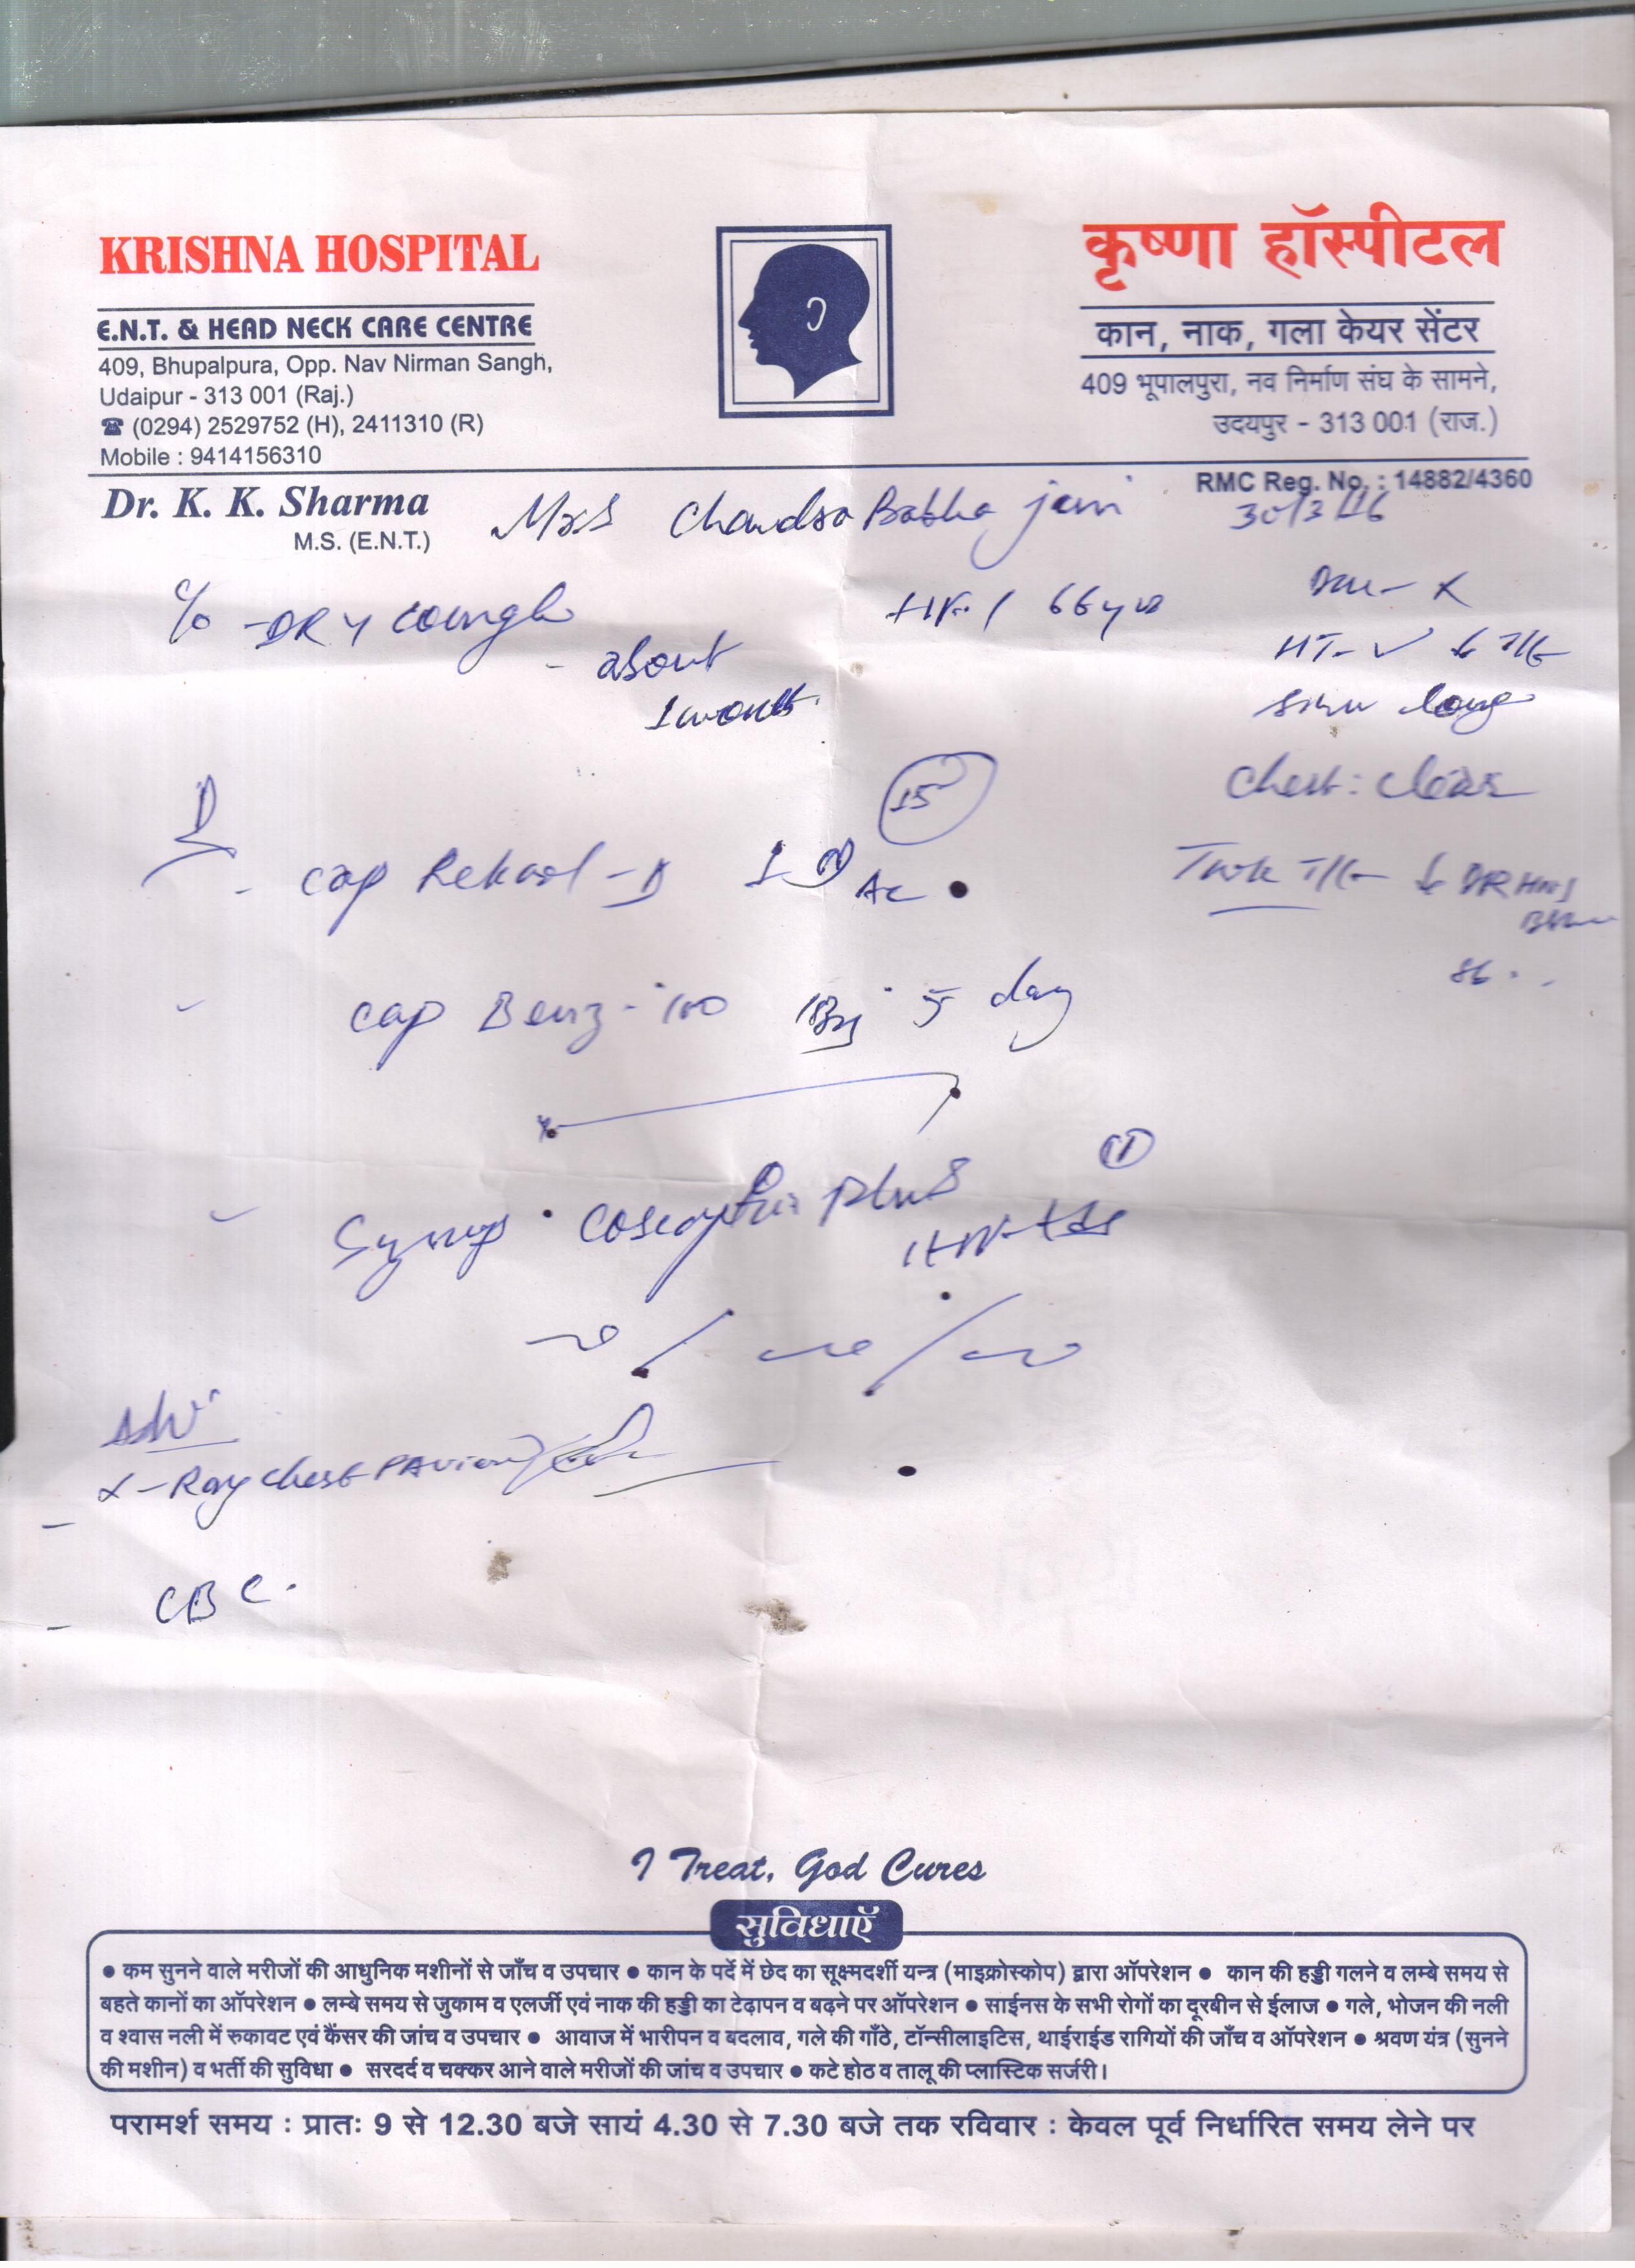 KRISHNA HOSPITAL
E.N.T. & HEAD NECK CARE CENTRE
409, Bhupalpura, Opp. Nav Nirman Sangh,
Udaipur - 313 001 (Raj.)
☎ (0294) 2529752 (H), 2411310 (R)
Mobile : 9414156310
कृष्णा हॉस्पीटल
कान, नाक, गला केयर सेंटर
409 भूपालपुरा, नव निर्माण संघ के सामने,
उदयपुर - 313 001 (राज.)
RMC Reg. No. : 14882/4360
Dr. K. K. Sharma
M.S. (E.N.T.)
Mrs Chandra Babha jain 30/3/16
C/o - DRY cough
- about
1 month.
66 yrs
HT - ✓
long
Chest : clear
15
- cap 1 AC
cap Benz - 100 5 day
Syrup Plus
1
Adv
X-Ray chest PA view
- CBC.
I Treat, God Cures
सुविधाएँ
● कम सुनने वाले मरीजों की आधुनिक मशीनों से जाँच व उपचार ● कान के पर्दे में छेद का सूक्ष्मदर्शी यन्त्र (माइक्रोस्कोप) द्वारा ऑपरेशन ● कान की हड्डी गलने व लम्बे समय से
बहते कानों का ऑपरेशन ● लम्बे समय से जुकाम व एलर्जी एवं नाक की हड्डी का टेढ़ापन व बढ़ने पर ऑपरेशन ● साईनस के सभी रोगों का दूरबीन से ईलाज ● गले, भोजन की नली
व श्वास नली में रुकावट एवं कैंसर की जांच व उपचार ● आवाज में भारीपन व बदलाव, गले की गाँठे, टॉन्सीलाइटिस, थाईराईड रागियों की जाँच व ऑपरेशन ● श्रवण यंत्र (सुनने
की मशीन) व भर्ती की सुविधा ● सरदर्द व चक्कर आने वाले मरीजों की जांच व उपचार ● कटे होठ व तालू की प्लास्टिक सर्जरी।
परामर्श समय : प्रातः 9 से 12.30 बजे सायं 4.30 से 7.30 बजे तक रविवार : केवल पूर्व निर्धारित समय लेने पर